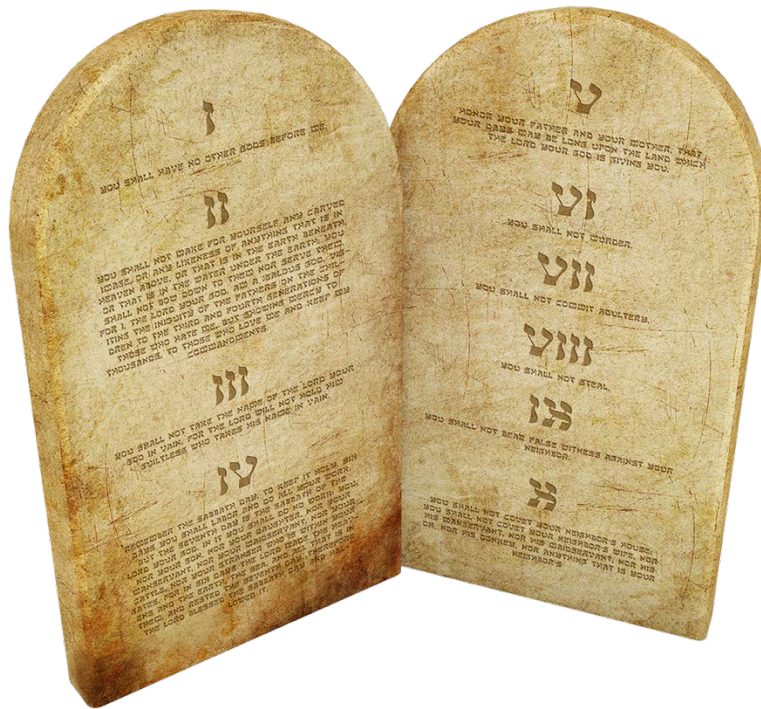 I
YOU SHALL HAVE NO OTHER GODS BEFORE ME.
II
YOU SHALL NOT MAKE FOR YOURSELF ANY CARVED
IMAGE, OR ANY LIKENESS OF ANYTHING THAT IS IN
HEAVEN ABOVE, OR THAT IS IN THE EARTH BENEATH,
OR THAT IS IN THE WATER UNDER THE EARTH; YOU
SHALL NOT BOW DOWN TO THEM NOR SERVE THEM.
FOR I, THE LORD YOUR GOD, AM A JEALOUS GOD, VIS-
ITING THE INIQUITY OF THE FATHERS ON THE CHILD-
REN TO THE THIRD AND FOURTH GENERATIONS OF
THOSE WHO HATE ME, BUT SHOWING MERCY TO
THOUSANDS, TO THOSE WHO LOVE ME AND KEEP MY
COMMANDMENTS.
III
YOU SHALL NOT TAKE THE NAME OF THE LORD YOUR
GOD IN VAIN, FOR THE LORD WILL NOT HOLD HIM
GUILTLESS WHO TAKES HIS NAME IN VAIN.
IV
REMEMBER THE SABBATH DAY, TO KEEP IT HOLY. SIX
DAYS YOU SHALL LABOR AND DO ALL YOUR WORK,
BUT THE SEVENTH DAY IS THE SABBATH OF THE
LORD YOUR GOD. IN IT YOU SHALL DO NO WORK: YOU,
NOR YOUR SON, NOR YOUR DAUGHTER, NOR YOUR
MANSERVANT, NOR YOUR MAIDSERVANT, NOR YOUR
CATTLE, NOR YOUR STRANGER WHO IS WITHIN YOUR
GATES. FOR IN SIX DAYS THE LORD MADE THE HEAV-
ENS AND THE EARTH, THE SEA, AND ALL THAT IS IN
THEM, AND RESTED THE SEVENTH DAY. THEREFORE
THE LORD BLESSED THE SABBATH DAY AND HAL-
LOWED IT.
V
HONOR YOUR FATHER AND YOUR MOTHER, THAT
YOUR DAYS MAY BE LONG UPON THE LAND WHICH
THE LORD YOUR GOD IS GIVING YOU.
VI
YOU SHALL NOT MURDER.
VII
YOU SHALL NOT COMMIT ADULTERY.
VIII
YOU SHALL NOT STEAL.
IX
YOU SHALL NOT BEAR FALSE WITNESS AGAINST YOUR
NEIGHBOR.
X
YOU SHALL NOT COVET YOUR NEIGHBOR'S HOUSE;
YOU SHALL NOT COVET YOUR NEIGHBOR'S WIFE, NOR
HIS MANSERVANT, NOR HIS MAIDSERVANT, NOR HIS
OX, NOR HIS DONKEY, NOR ANYTHING THAT IS YOUR
NEIGHBOR'S.